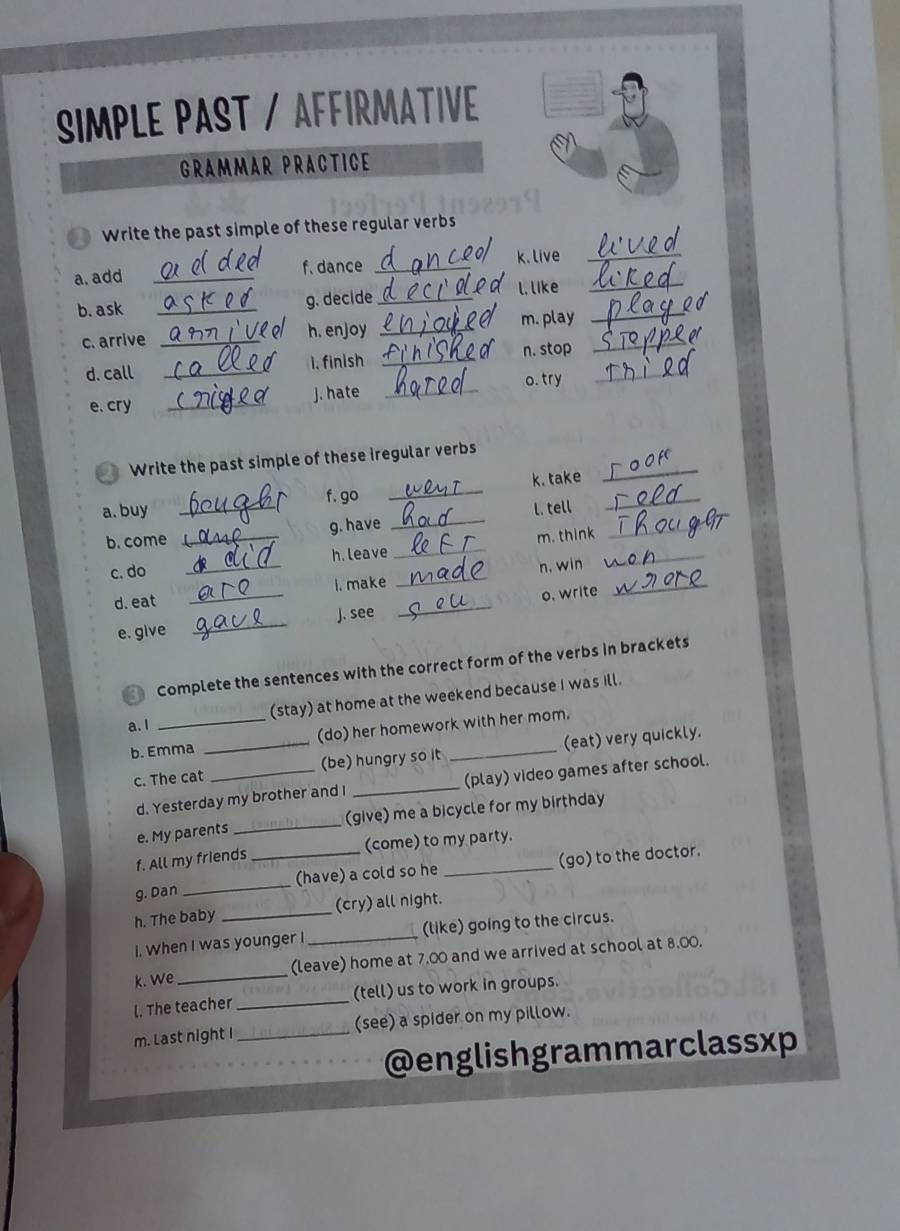 SIMPLE PAST / AFFIRMATIVE
GRAMMAR PRACTICE
1 Write the past simple of these regular verbs
a. add added f. dance danced k. live lived
b. ask asked g. decide decided l. like liked
c. arrive arrived h. enjoy enjoyed m. play played
d. call called i. finish finished n. stop stopped
e. cry cried j. hate hated o. try tried
2 Write the past simple of these iregular verbs
a. buy bought f. go went k. take took
b. come came g. have had l. tell told
c. do did h. leave left m. think thought
d. eat ate i. make made n. win won
e. give gave j. see seu o. write wrote
3 Complete the sentences with the correct form of the verbs in brackets
a. I __________ (stay) at home at the weekend because I was ill.
b. Emma __________ (do) her homework with her mom.
c. The cat __________ (be) hungry so it __________ (eat) very quickly.
d. Yesterday my brother and I __________ (play) video games after school.
e. My parents __________ (give) me a bicycle for my birthday
f. All my friends __________ (come) to my party.
g. Dan __________ (have) a cold so he __________ (go) to the doctor.
h. The baby __________ (cry) all night.
i. When I was younger I __________ (like) going to the circus.
k. We __________ (leave) home at 7.00 and we arrived at school at 8.00.
l. The teacher __________ (tell) us to work in groups.
m. Last night I __________ (see) a spider on my pillow.
@englishgrammarclassxp